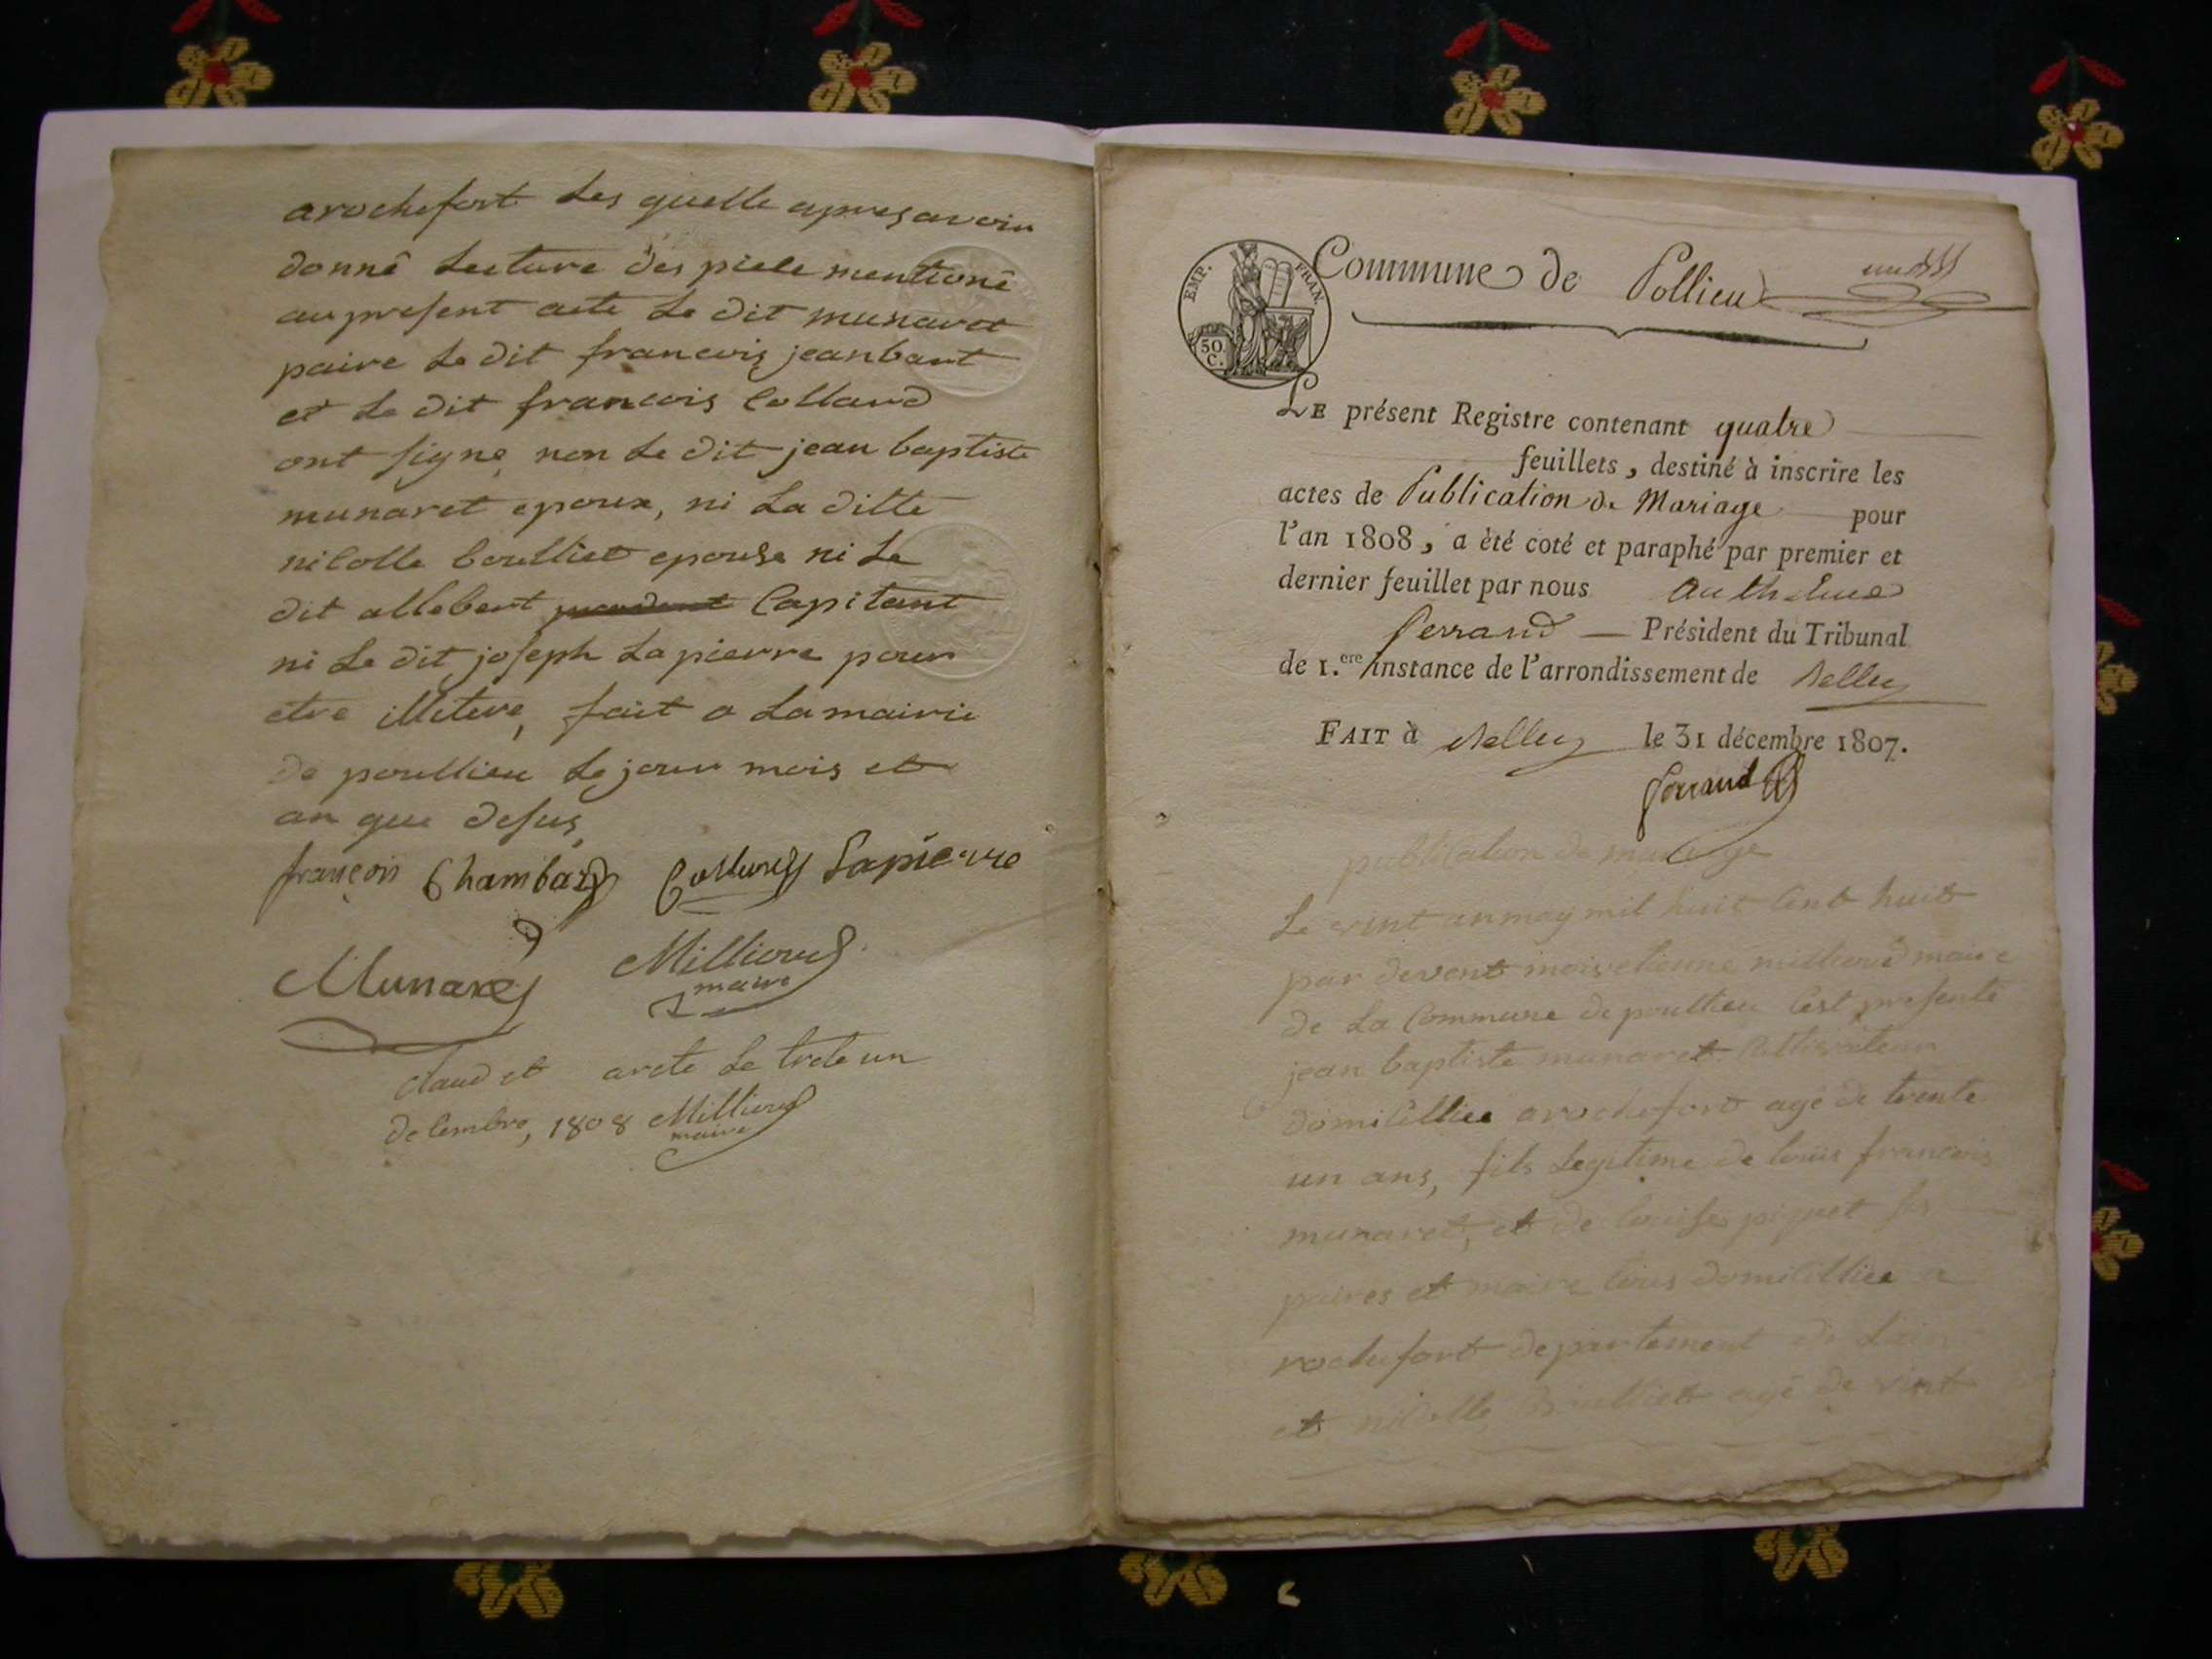 arochefort Les quelle apres avoir
donné Lecture des piece mentioné
au present acte Le dit munaret
paire Le dit francois jeanbart
et Le dit francois Collard
ont signe, non Le dit jean baptiste
munaret epoux, ni La ditte
nicolle boulliet epouse ni Le
dit allebert Capitant
ni Le dit joseph Lapierre pour
etre illetere, fait a La mairie
de poullieu Le jour mois et
an que desus,
françois Chambard Lapierre
Munaret Milliond
maire
claud et arete Le trete un
decembre, 1808 Milliond
maire
Commune de Pollieu
EMP. FRAN.
50 C.
LE présent Registre contenant quatre
feuillets, destiné à inscrire les
actes de Publication de Mariage pour
l'an 1808, a été coté et paraphé par premier et
dernier feuillet par nous Anthelme
Ferrand — Président du Tribunal
de 1.ere instance de l'arrondissement de Belley
FAIT à Belley le 31 décembre 1807.
Ferrand
publication de mariage
Le vint un may mil huit Cent huit
par devent moi etienne milliond maire
de La Commune de poullieu Cest presenté
jean baptiste munaret Cultivateur
domicilliee arochefort agé de trente
un ans, fils Legitime de louis francois
munaret, et de louise piquet ses
paires et maire tous domicilliee a
rochefort departement de Lain
et nicolle boulliet agé de vint